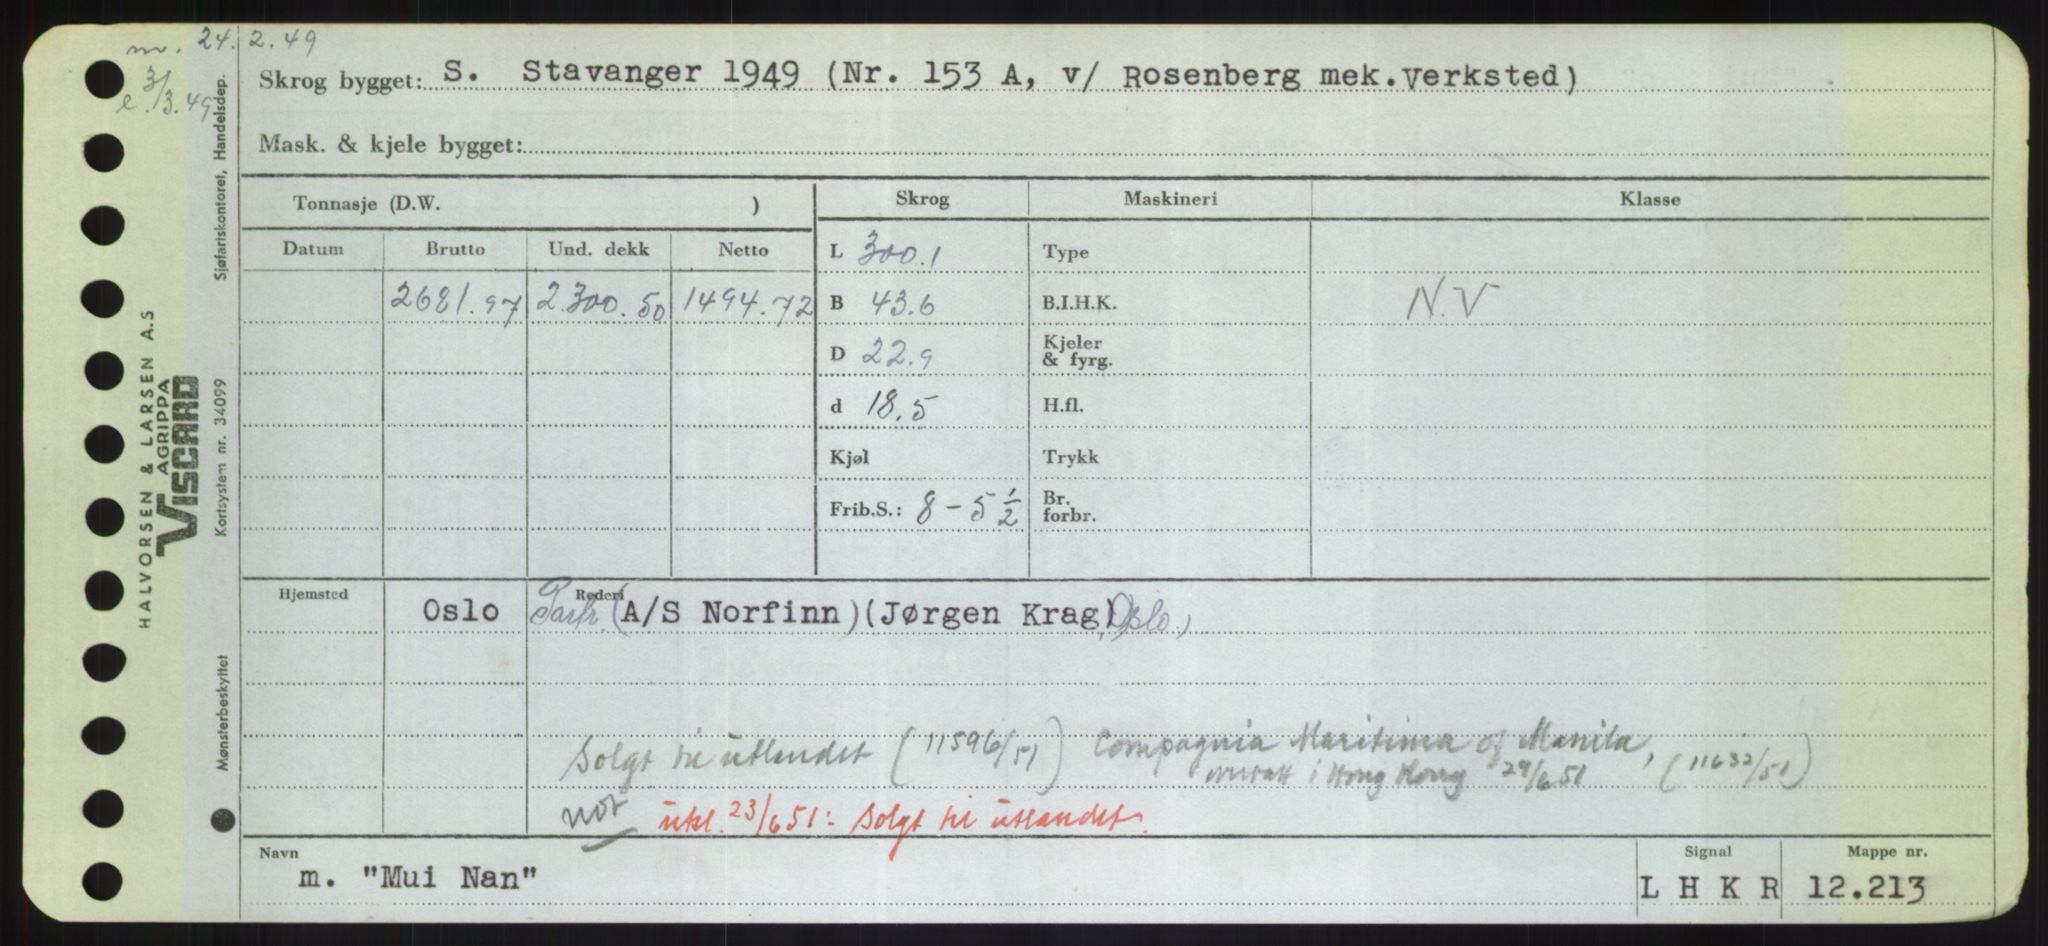 m. 24.2.49
e. 3/3.49
Skrog bygget: S. Stavanger 1949 (Nr. 153 A, v/ Rosenberg mek.Verksted)
Mask. & kjele bygget:
Tonnasje (D.W. )
Skrog Maskineri Klasse
Datum Brutto Und. dekk Netto
L 300.1 Type
2681.97 2.300.50 1494.72
B 43.6 B.I.H.K. N.V
D 22.9 Kjeler & fyrg.
d 18.5 H.fl.
Kjøl Trykk
Frib.S.: 8 - 5 1/2 Br. forbr.
Hjemsted Rederi
Oslo Partr. (A/S Norfinn)(Jørgen Krag), Oslo,
Solgt til utlandet (11596/51) Compagnia Maritima of Manila,
i Hong Kong 29/6.51 (11632/51)
not utkl. 23/6 51: Solgt til utlandet.
Navn
m. "Mui Nan"
Signal
L H K R
Mappe nr.
12.213
HALVORSEN & LARSEN A.S
AGRIPPA
VISCARD
Sjøfartskontoret, Handelsdep.
Kortsystem nr. 34099
Mønsterbeskyttet